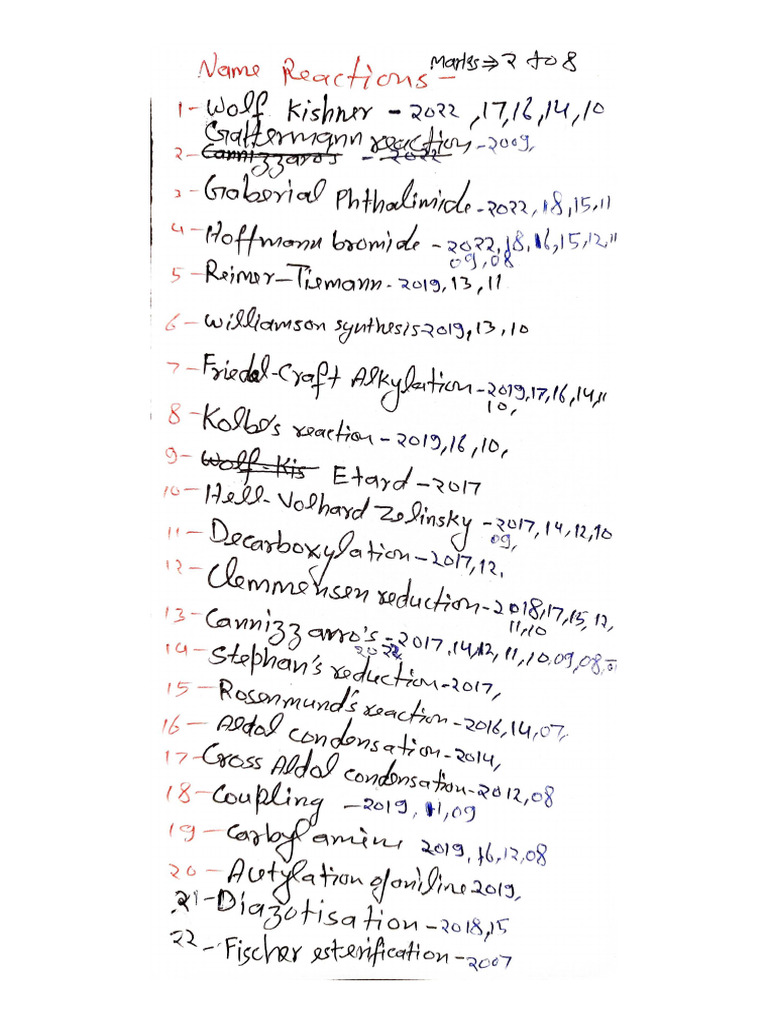 Name Reactions - Marks ⇒ 2 to 8
1- Wolf Kishner - 2022, 17, 16, 14, 10
Gattermann reaction - 2009,
2- Cannizzaro's - 2022
3- Gaberial Phthalimide - 2022, 18, 15, 11
4- Hoffmann bromide - 2022, 18, 16, 15, 12, 11
09, 08
5- Reimer-Tiemann - 2019, 13, 11
6- Williamson synthesis - 2019, 13, 10
7- Friedel-Craft Alkylation - 2019, 17, 16, 14, 11
10,
8- Kolbe's reaction - 2019, 16, 10,
9- Wolf-Kis Etard - 2017
10- Hell-Volhard Zelinsky - 2017, 14, 12, 10
09,
11- Decarboxylation - 2017, 12.
12- Clemmensen reduction - 2018, 17, 15, 12,
11, 10
13- Cannizzarro's - 2017, 14, 12, 11, 10, 09, 08,
2022
14- Stephan's reduction - 2017,
15- Rosenmund's reaction - 2016, 14, 07,
16- Aldol condensation - 2014,
17- Cross Aldol condensation - 2012, 08
18- Coupling - 2019, 11, 09
19- Carbylamine 2019, 16, 12, 08
20- Acetylation of aniline 2019,
21- Diazotisation - 2018, 15
22- Fischer esterification - 2007